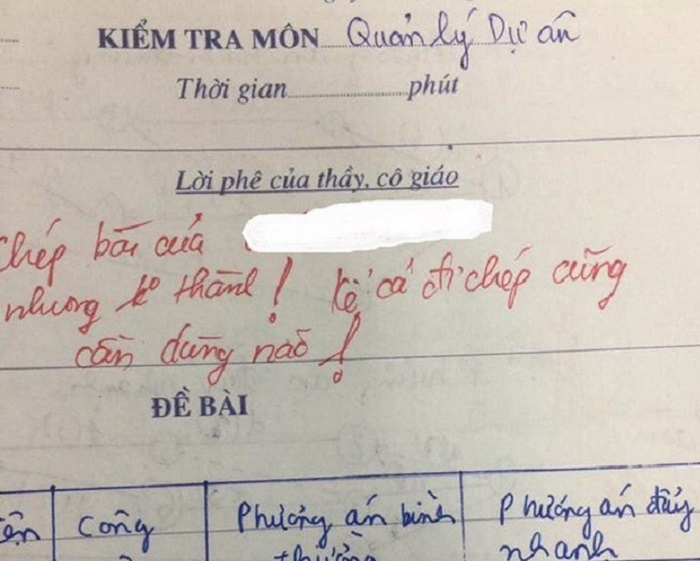 KIỂM TRA MÔN Quản lý Dự án
Thời gian..............phút
Lời phê của thầy, cô giáo
Chép bài của
nhưng ko thành! Kể cả đi chép cũng
cần dùng não!
ĐỀ BÀI
Công Phương án bình Phương án đẩy
thường nhanh